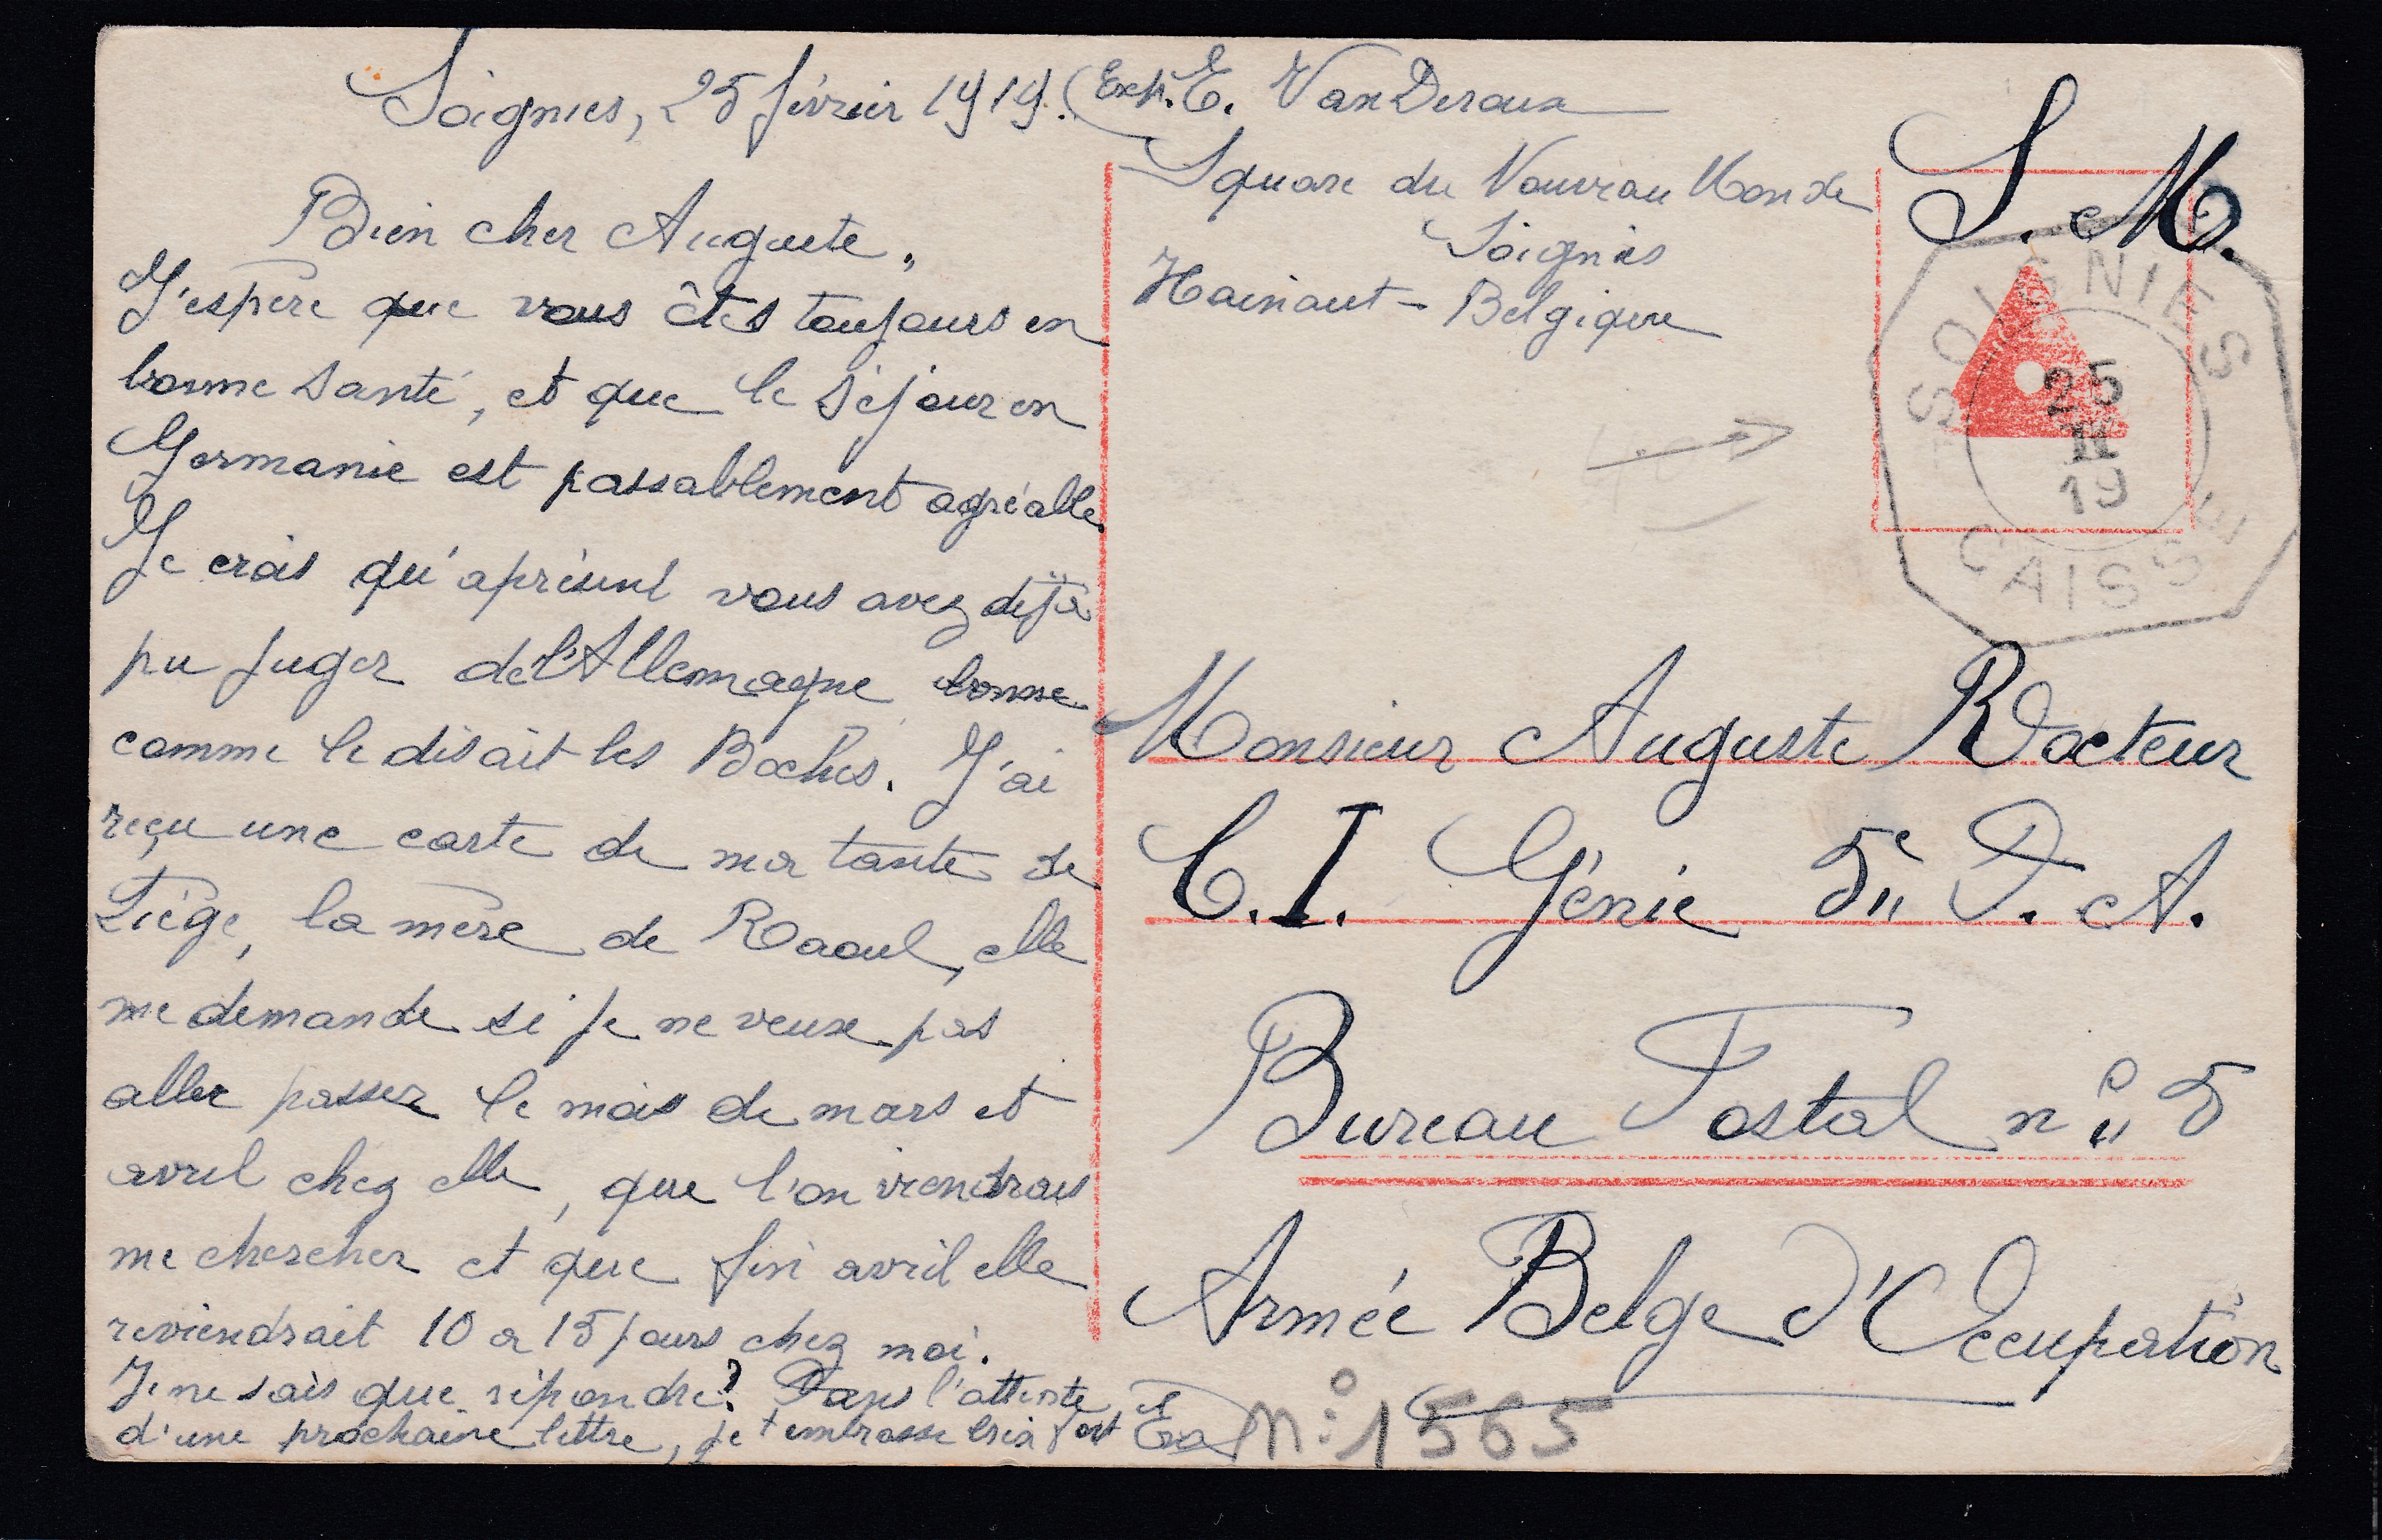 Soignies, 25 février 1919.
Bien cher Auguste,
J'espère que vous êtes toujours en
bonne santé, et que le séjour en
Germanie est passablement agréable.
Je crois qu'aprésent vous avez déjà
pu juger de l'Allemagne bonne
comme le disait les Boches. J'ai
reçu une carte de ma tante de
Liège, la mère de Raoul, elle
me demande si je ne veux pas
aller passer le mois de mars et
avril chez elle, que l'on viendrais
me chercher et que fin avril elle
reviendrait 10 a 15 jours chez moi.
Je ne sais que répondre? Dans l'attente
d'une prochaine lettre, je t'embrasse bien fort
(Exp. E. VanDeraux
Square du Nouveau Monde
Soignies
Hainaut - Belgique
S. M.
SOIGNIES
25
II
19
CAISSE
Monsieur Auguste Docteur
C.I. Génie 5e D. A.
Bureau Postal no 5
Armée Belge d'Occupation
No 1565